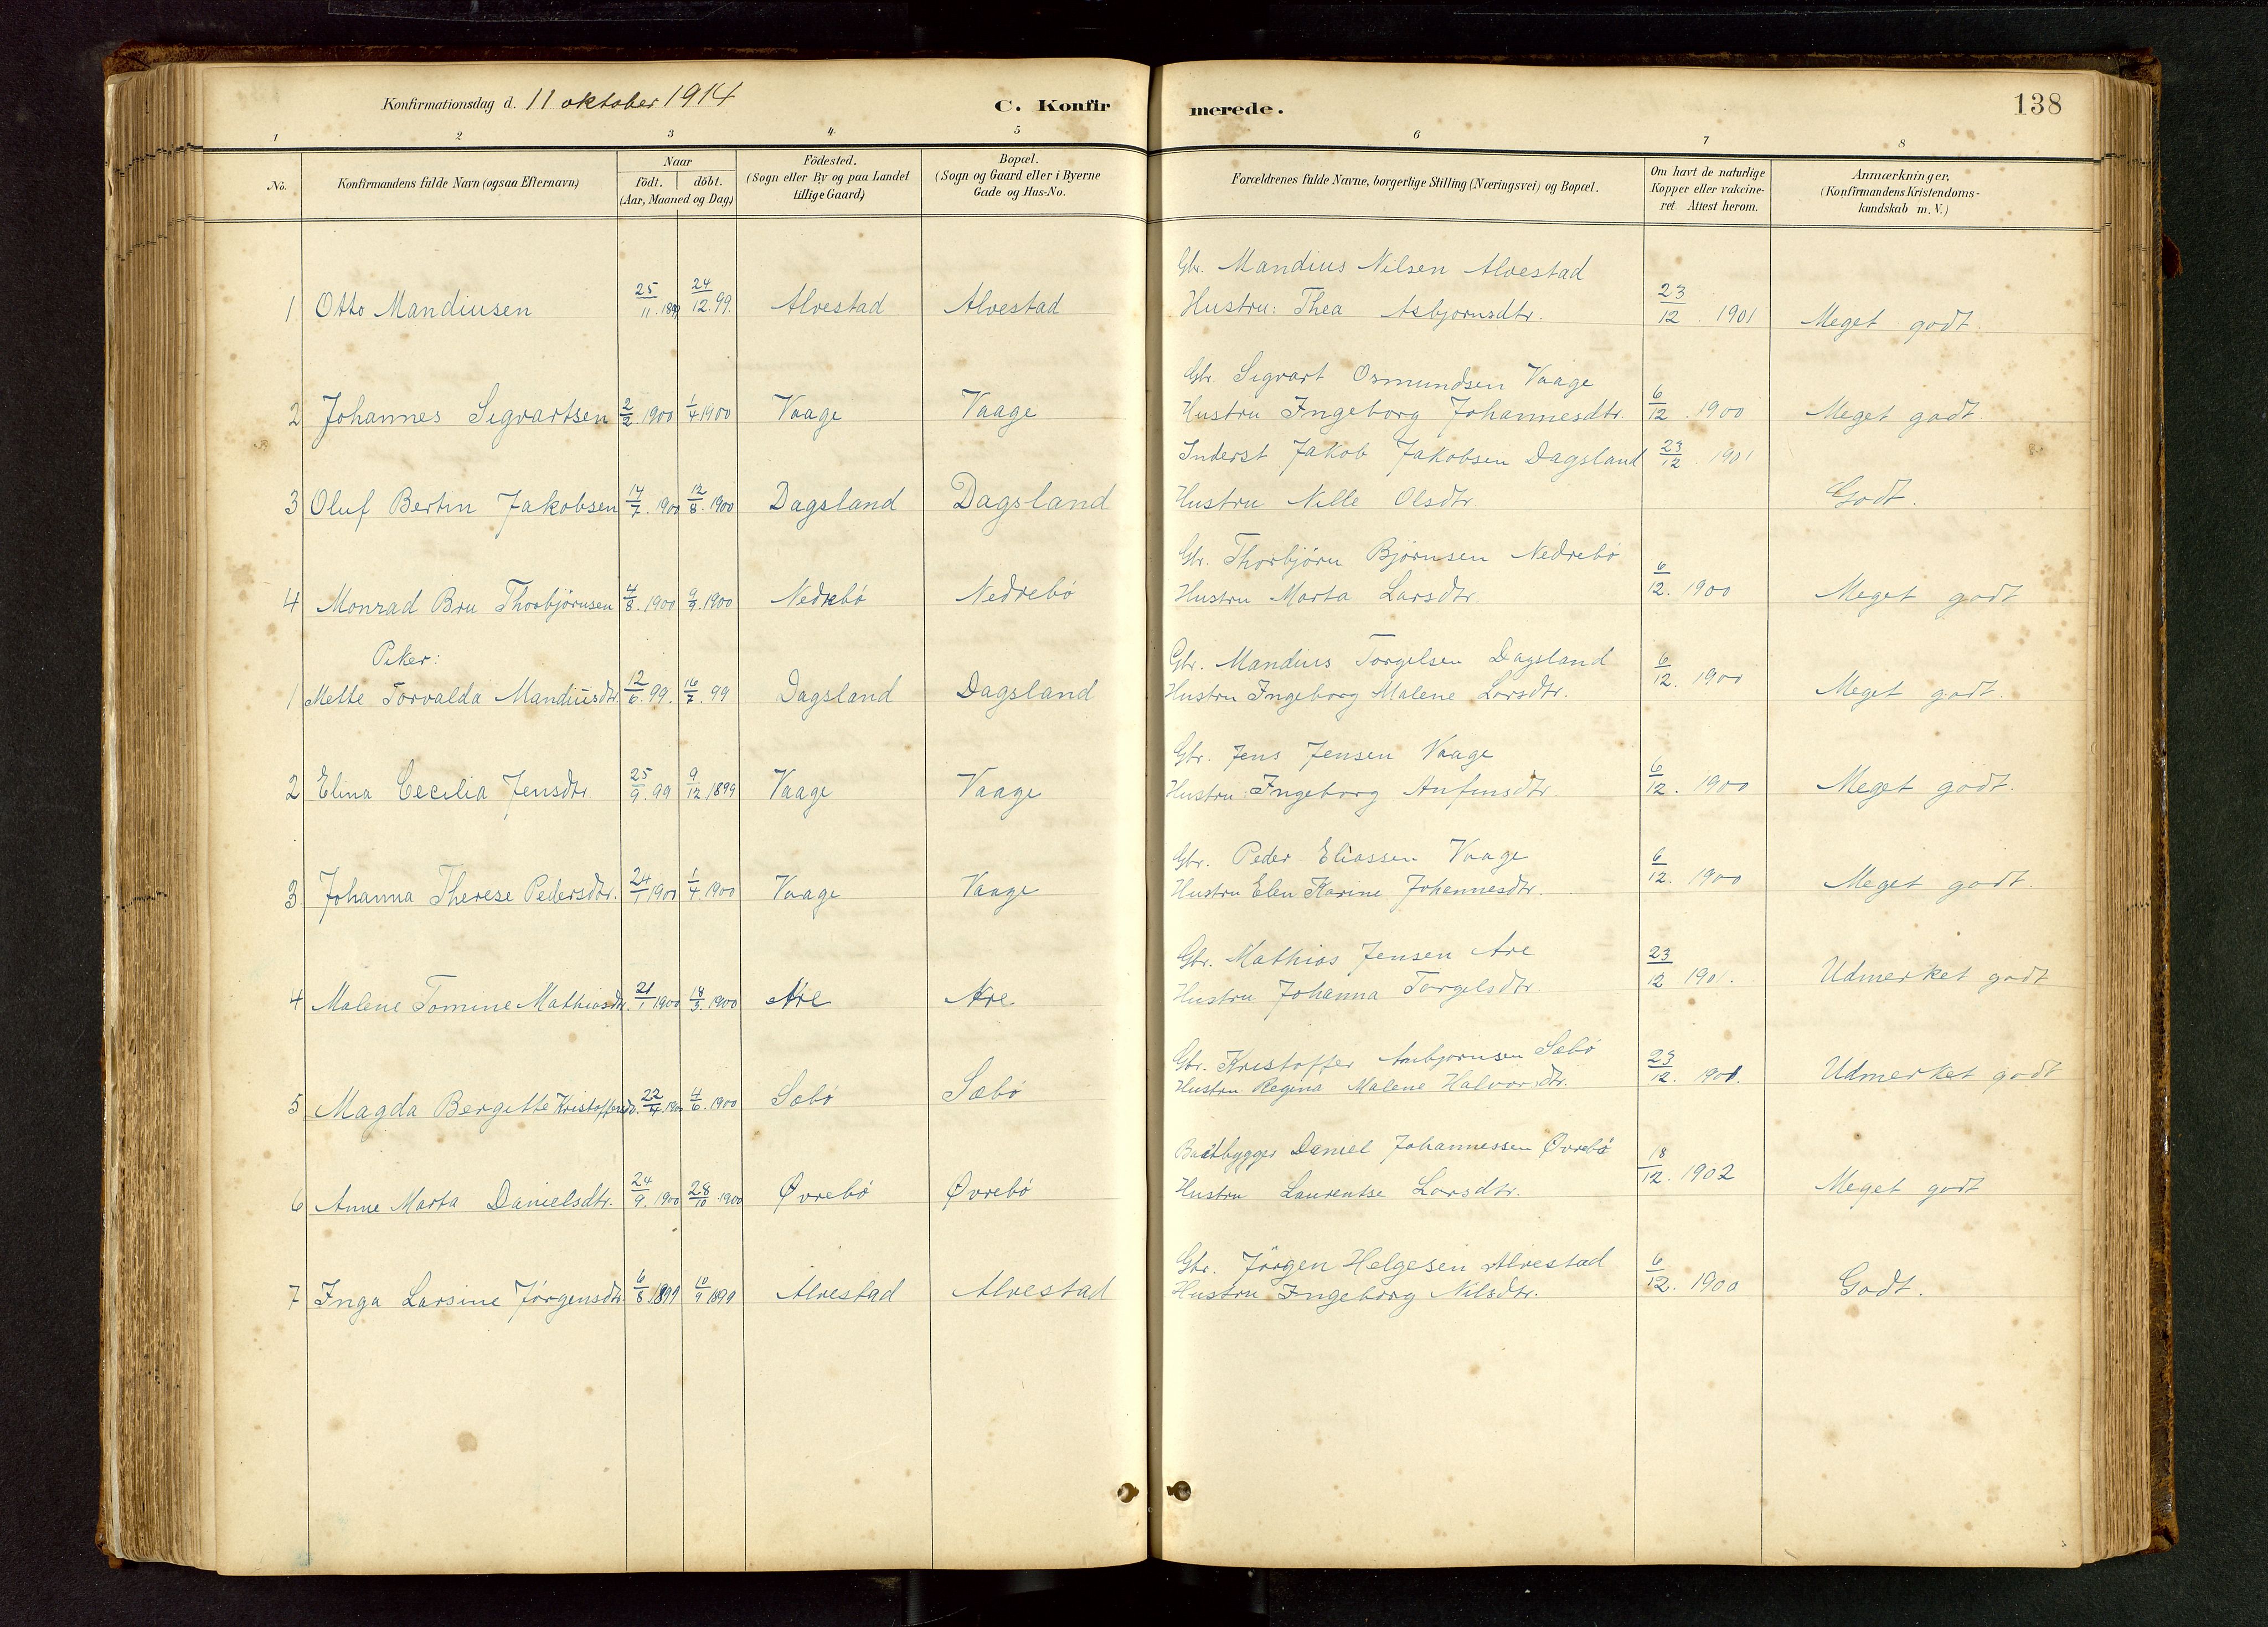 Konfirmationsdag d. 11 oktober 1914
C. Konfirmerede.
138
1 2 3 4 5 6 7 8
No. Konfirmandens fulde Navn (ogsaa Efternavn) Naar födt. döbt. (Aar, Maaned og Dag) Födested. (Sogn eller By og paa Landet tillige Gaard) Bopæl. (Sogn og Gaard eller i Byerne Gade og Hus-No. Forældrenes fulde Navne, borgerlige Stilling (Næringsvei) og Bopæl. Om havt de naturlige Kopper eller vakcineret. Attest herom. Anmærkninger, (Konfirmandens Kristendomskundskab m. V.)
Gbr. Mandius Nilsen Alvestad
1 Otto Mandiusen 25/11.1899 24/12.99. Alvestad Alvestad Hustru: Thea Asbjornsdtr. 23/12. 1901 Meget godt.
Gbr. Sigvart Osmundsen Vaage
2 Johannes Sigvartsen 2/2.1900 1/4 1900 Vaage Vaage Hustru Ingeborg Johannesdtr. 6/12. 1900 Meget godt.
Inderst Jakob Jakobsen Dagsland 23/12. 1901
3 Oluf Bertin Jakobsen 14/7.1900 12/8.1900 Dagsland Dagsland Hustru Nille Olsdtr. Godt.
Gbr. Thorbjörn Björnsen Nedrebö
4 Monrad Bru Thorbjörnsen 4/8.1900 9/9.1900 Nedrebö Nedrebö Hustru Marta Larsdtr. 6/12. 1900 Meget godt
Piker:
Gbr. Mandius Torgelsen Dagsland
1 Mette Torvalda Mandiusdtr. 12/6.99. 16/7.99 Dagsland Dagsland Hustru Ingeborg Malene Larsdtr. 6/12. 1900 Meget godt.
Gbr. Jens Jensen Vaage
2 Elina Cecilia Jensdtr. 25/9.99 9/12.1899 Vaage Vaage Hustru Ingeborg Anfinsdtr. 6/12. 1900 Meget godt.
Gbr. Peder Eliassen Vaage
3. Johanna Therese Pedersdtr. 24/1 1900 1/4.1900 Vaage Vaage Hustru Elen Karine Johannesdtr. 6/12. 1900 Meget godt.
Gbr. Mathias Jensen Are
4 Malene Tomine Mathiasdtr. 21/1 1900 18/3.1900 Are Are Hustru Johanna Torgelsdtr. 23/12 1901. Udmerket godt
Gbr. Kristoffer Asbjornsen Sæbö
5 Magda Bergitte Kristoffersdtr. 22/4.1900 4/6.1900 Sæbö Sæbö Hustru Regina Malene Halvorsdtr. 23/12. 1901. Udmerket godt
Baatbygger Daniel Johannessen Øvrebö
6 Anne Marta Danielsdtr. 24/9.1900 28/10.1900 Øvrebö Øvrebö Hustru Laurentse Larsdtr. 18/12. 1902 Meget godt
Gbr. Jörgen Helgesen Alvestad
7 Inga Larsine Jörgensdtr. 6/8.1899 10/9 1899 Alvestad Alvestad Hustru Ingeborg Nilsdtr. 6/12. 1900 Godt.